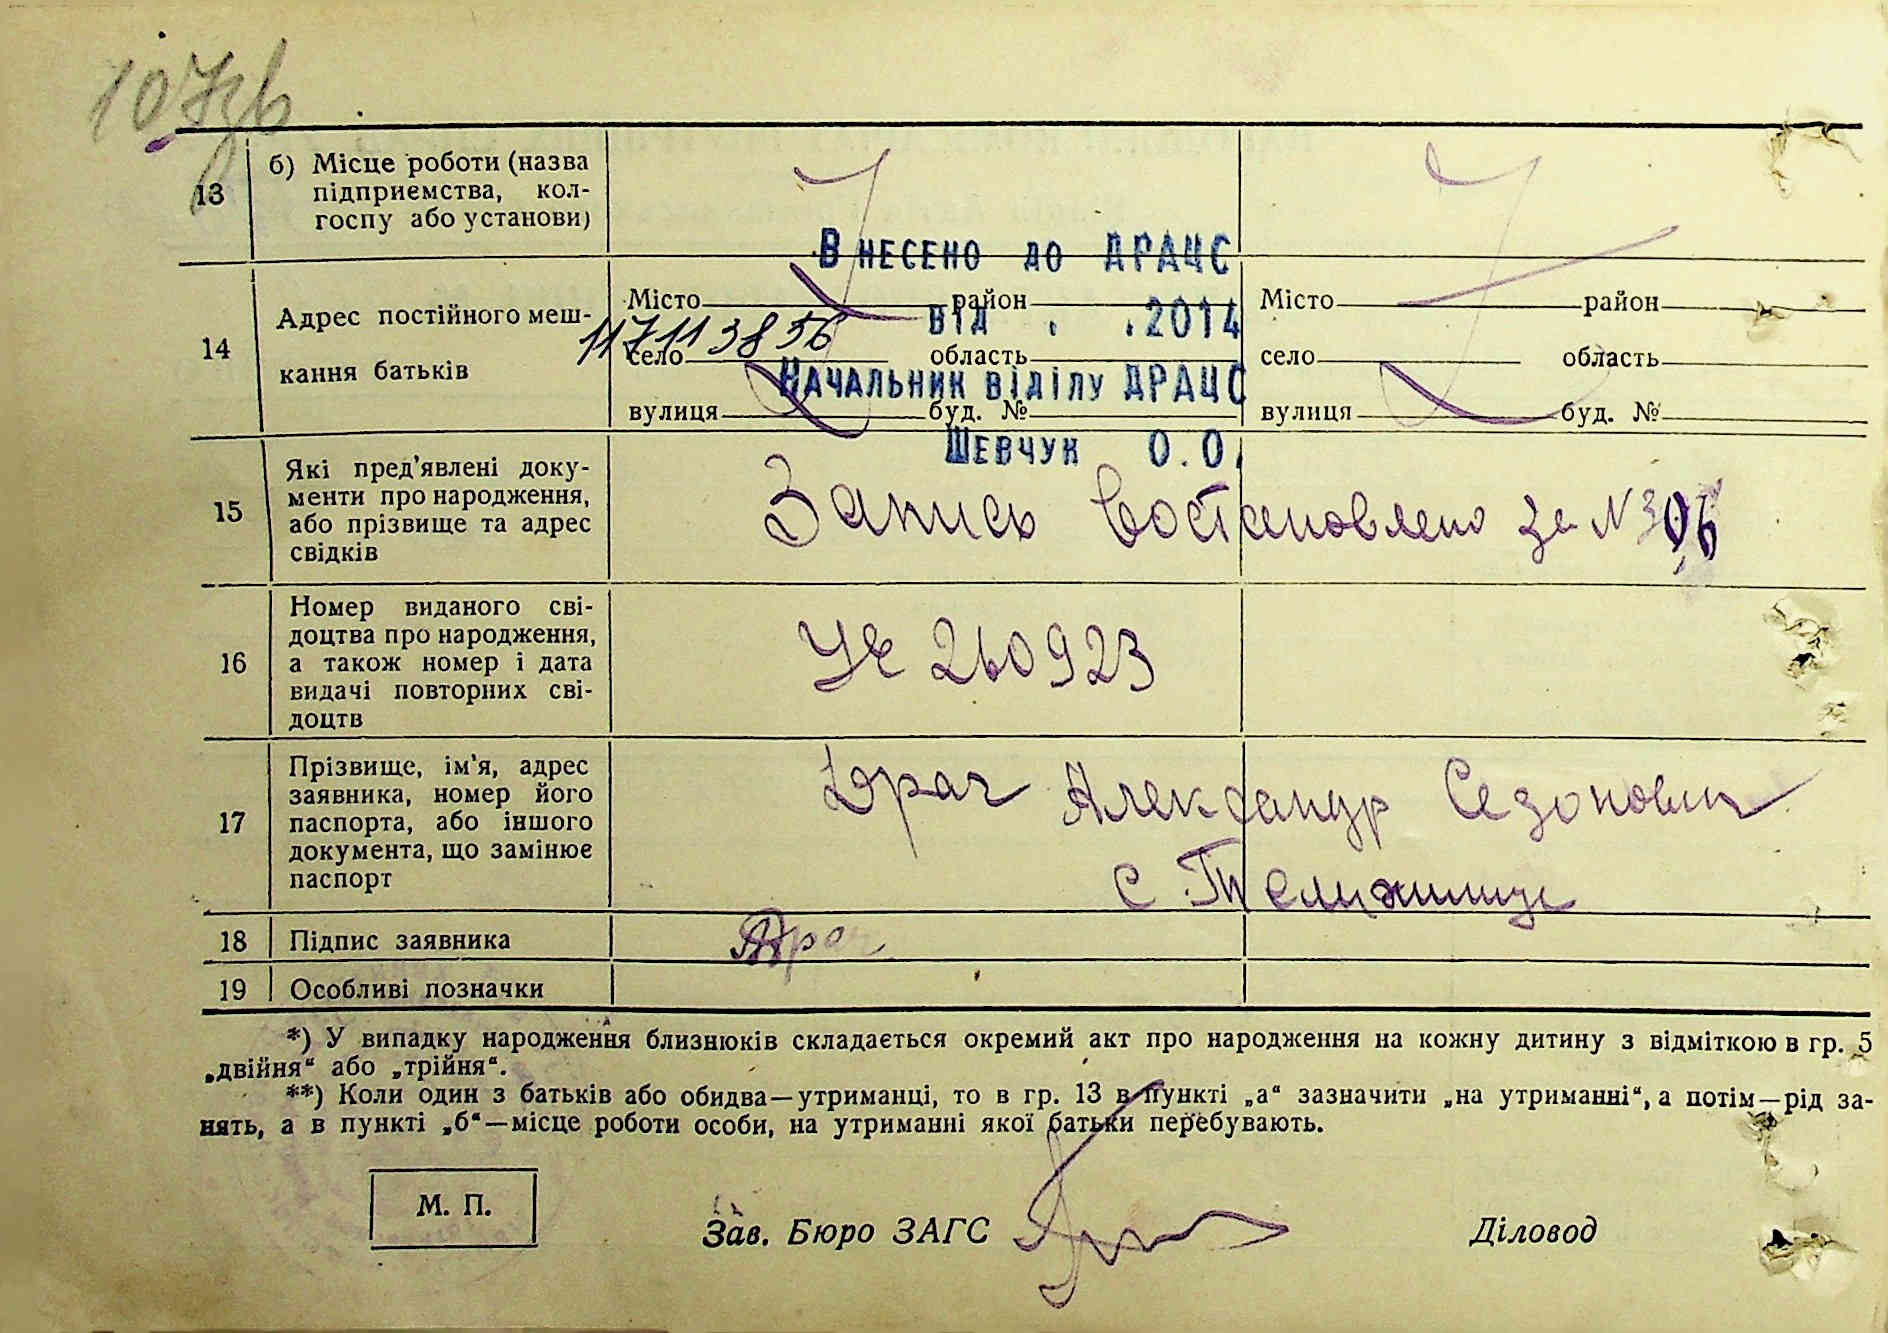 107зв
13
б) Місце роботи (назва
підприємства, кол-
госпу або установи)
Внесено до ДРАЦС
14
Адрес постійного меш-
кання батьків
Місто район
Місто район
від . .2014
11711 3856
село область
село область
Начальник відділу ДРАЦС
вулиця буд. №
вулиця буд. №
Шевчук О.О.
15
Які пред'явлені доку-
менти про народження,
або прізвище та адрес
свідків
Запись востановлено за N 306
16
Номер виданого сві-
доцтва про народження,
а також номер і дата
видачі повторних сві-
доцтв
УЕ 260923
17
Прізвище, ім'я, адрес
заявника, номер його
паспорта, або іншого
документа, що замінює
паспорт
Драч Александр Сезонович
с.
18
Підпис заявника
Драч
19
Особливі позначки
*) У випадку народження близнюків складається окремий акт про народження на кожну дитину з відміткою в гр. 5
„двійня“ або „трійня“.
**) Коли один з батьків або обидва—утриманці, то в гр. 13 в пункті „а“ зазначити „на утриманні“, а потім—рід за-
нять, а в пункті „б“—місце роботи особи, на утриманні якої батьки перебувають.
М. П.
Зав. Бюро ЗАГС
Діловод